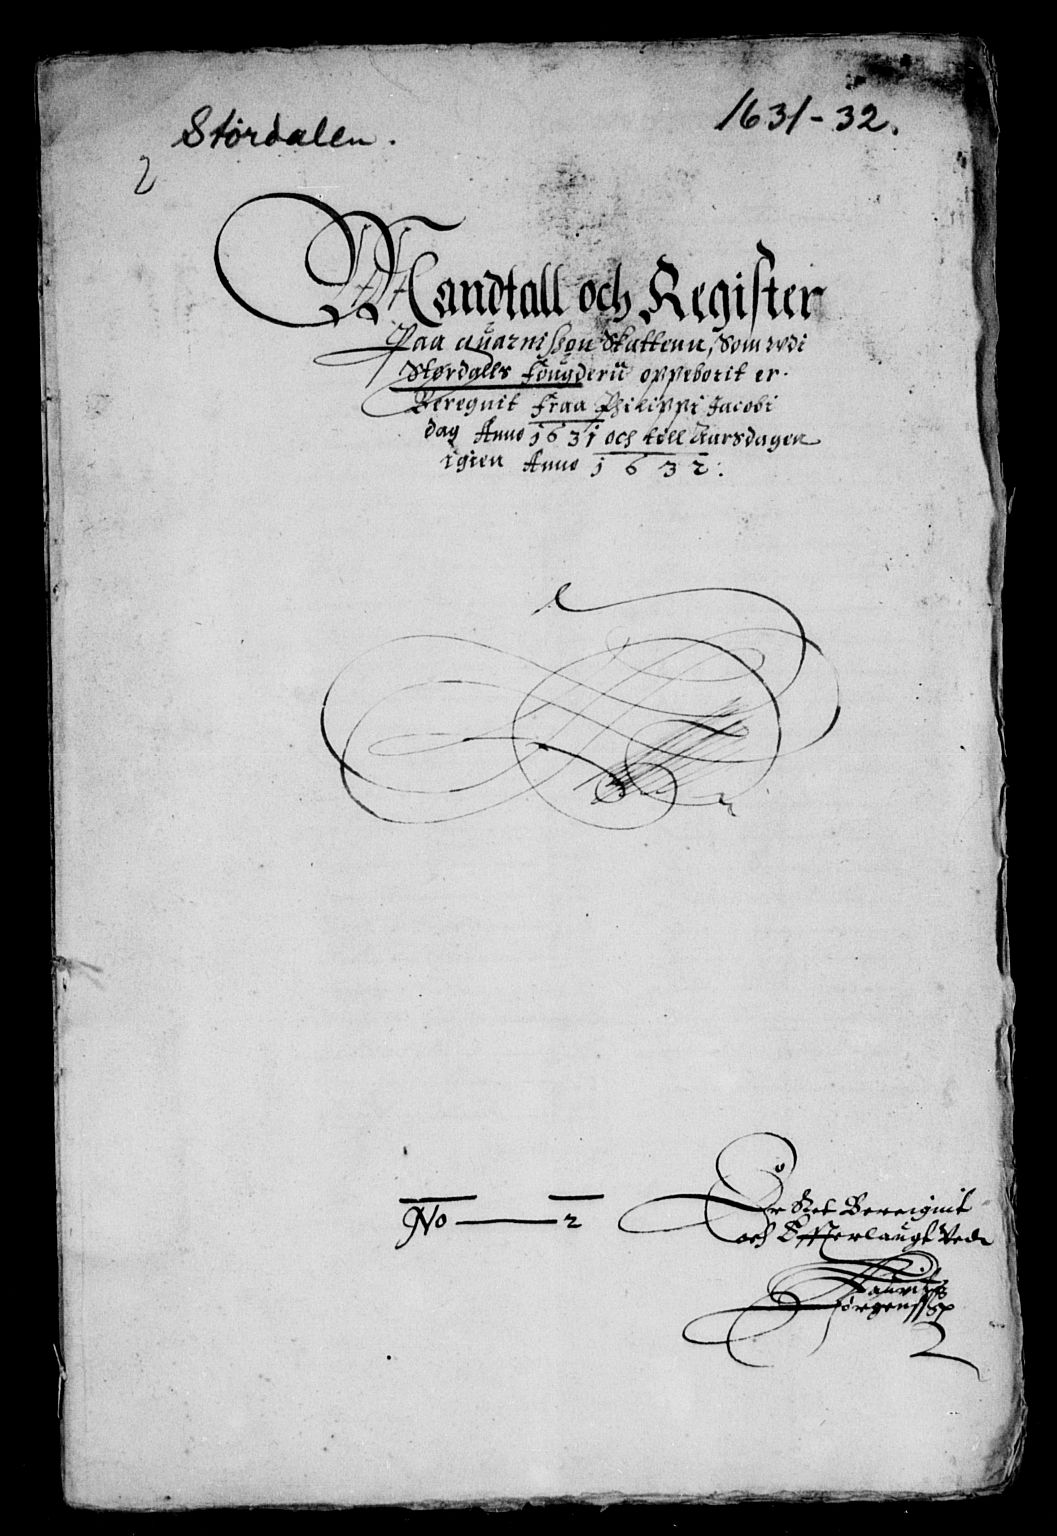 Størdalen.
1631-32.
2
Mandtall och Register
Paa Guarnison Skattenn, Som udi
Størdalls Fougderii oppeborit er.
Beregnit Fraa Philippi Jacobi
dag Anno 1631 och till Aarsdagen
igien Anno 1632.
No 2
Er Ret Bereignit
och Efferlaugt Ved
Lauritz
Jørgenss